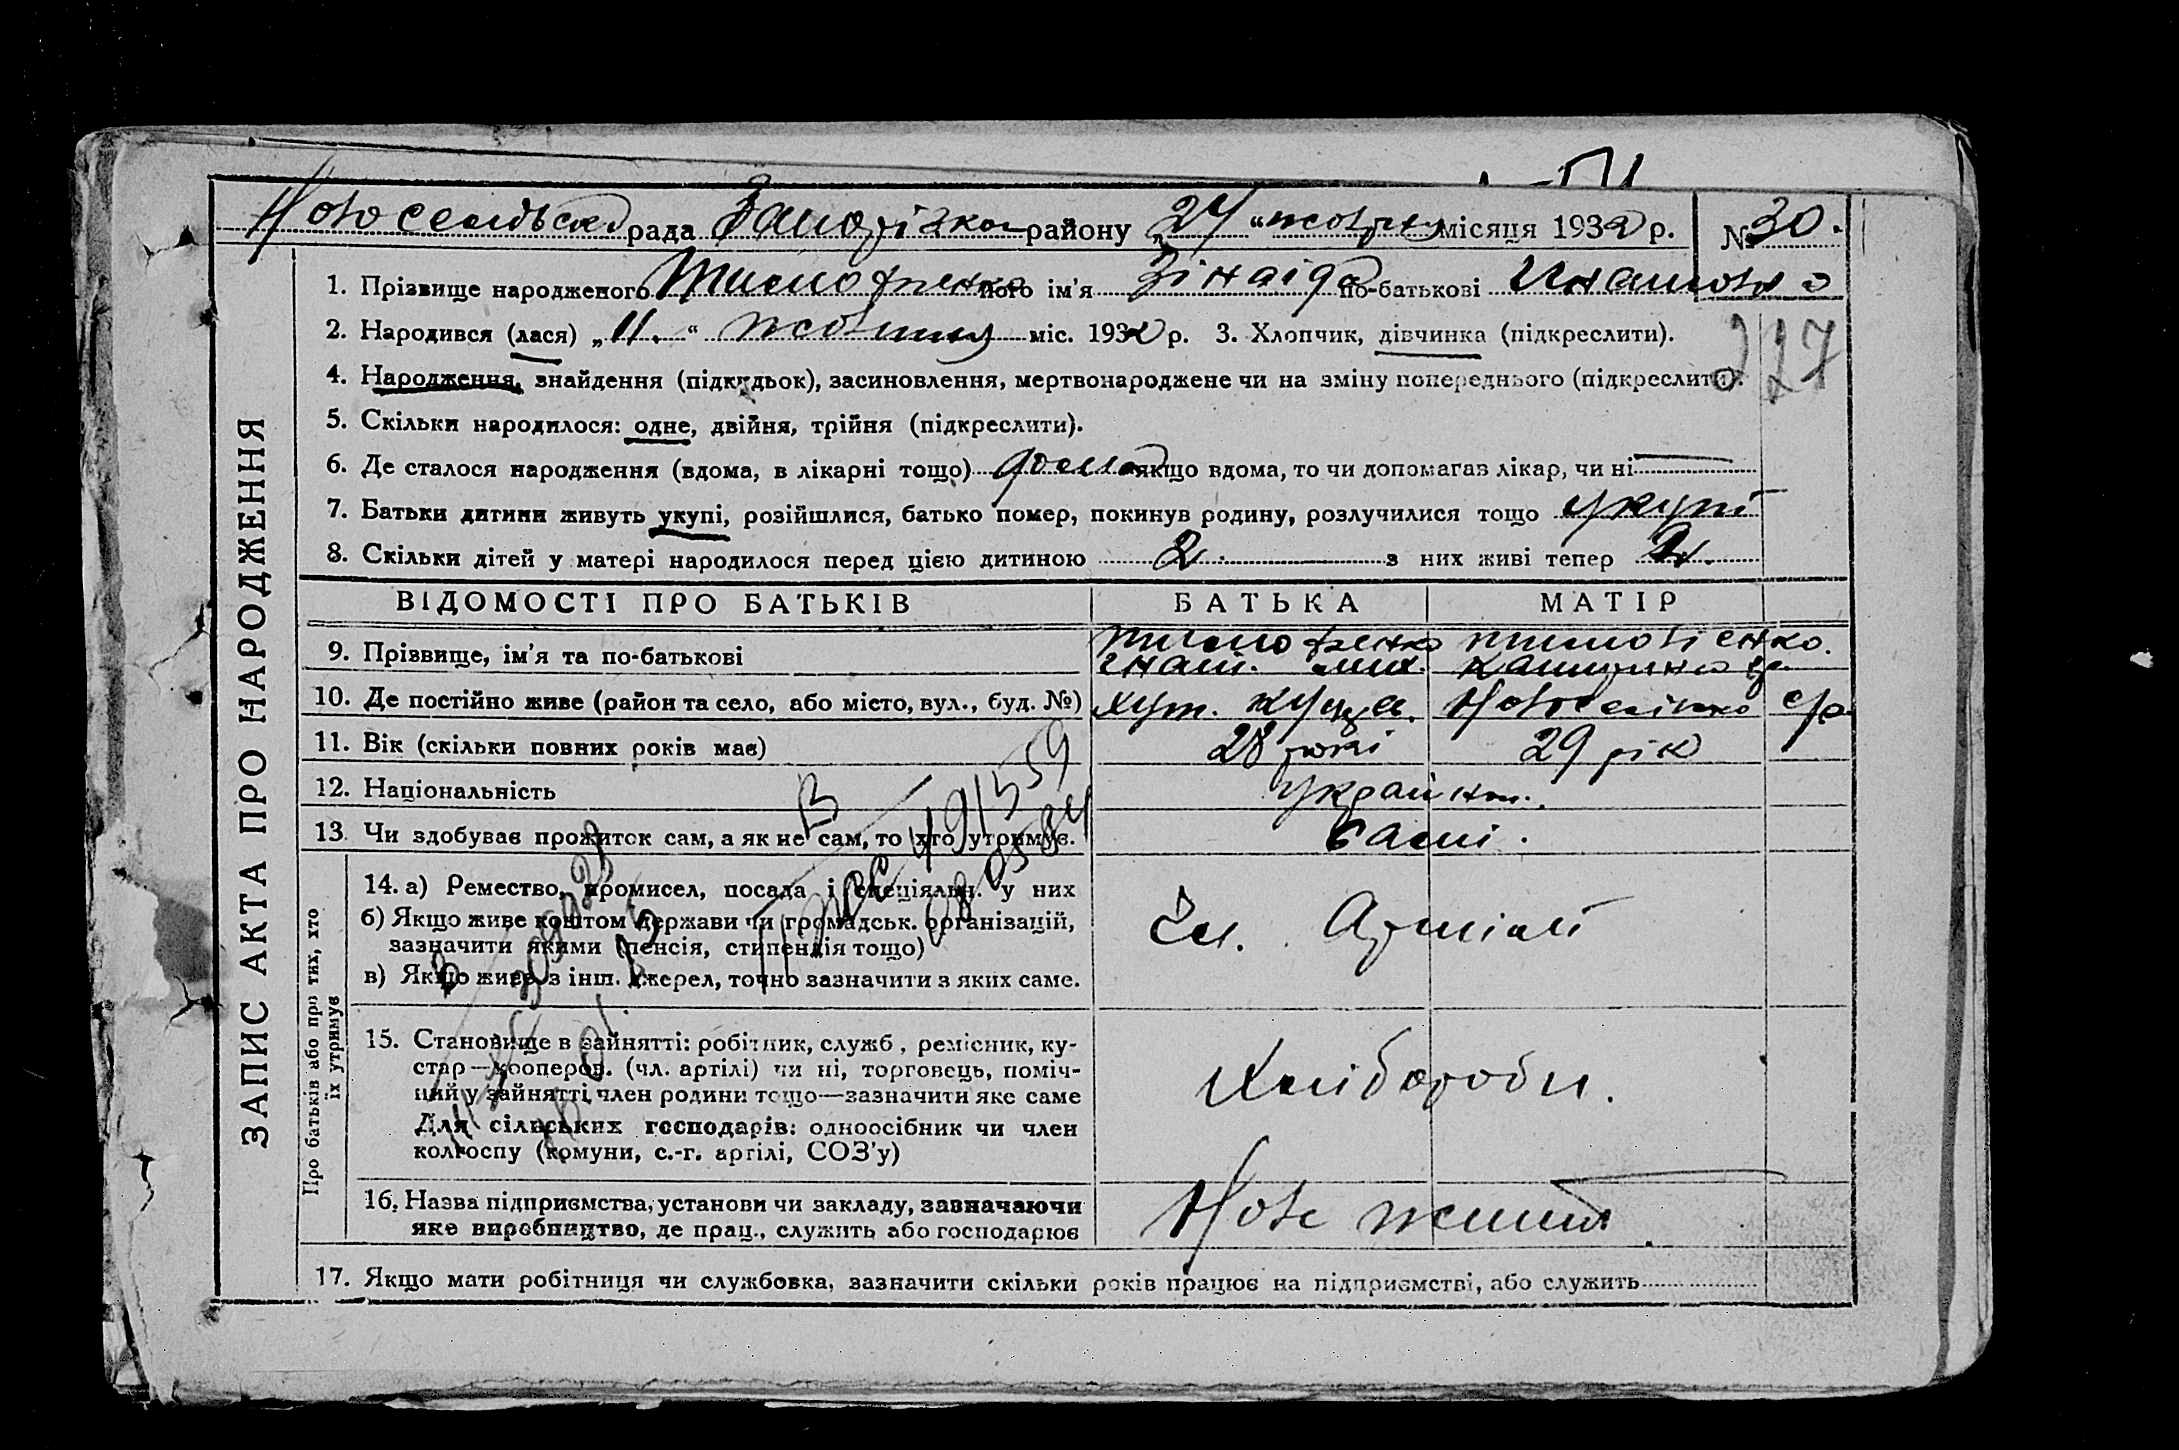 Новосельська рада Запорізкого району „24“ жовтня місяця 1932 р. № 30.
1. Прізвище народженого його ім'я Зінаіда по-батькові
2. Народився (лася) „11.“ жовтня міс. 1932 р. 3. Хлопчик, дівчинка (підкреслити).
227
4. Народження, знайдення (підкидьок), засиновлення, мертвонароджене чи на зміну попереднього (підкреслити).
5. Скільки народилося: одне, двійня, трійня (підкреслити).
6. Де сталося народження (вдома, в лікарні тощо) дома якщо вдома, то чи допомагав лікар, чи ні —
7. Батьки дитини живуть укупі, розійшлися, батько помер, покинув родину, розлучилися тощо укупі
8. Скільки дітей у матері народилося перед цією дитиною 2. з них живі тепер 2.
ВІДОМОСТІ ПРО БАТЬКІВ БАТЬКА МАТІР
9. Прізвище, ім'я та по-батькові
10. Де постійно живе (район та село, або місто, вул., буд. №) хут.
11. Вік (скільки повних років має) 28 рокі 29 рік
12. Національність
13. Чи здобуває прожиток сам, а як не сам, то хто утримує. самі.
14. а) Ремество, промисел, посада і спеціяльн. у них
б) Якщо живе коштом держави чи громадськ. організацій,
зазначити якими (пенсія, стипендія тощо)
в) Якщо живе з інш. джерел, точно зазначити з яких саме.
Чл. Артілі
15. Становище в зайнятті: робітник, служб., ремісник, ку-
стар—кооперов. (чл. артілі) чи ні, торговець, поміч-
ний у зайнятті член родини тощо—зазначити яке саме
Для сільських господарів: одноосібник чи член
колгоспу (комуни, с.-г. артілі, СОЗ'у)
Хлібороби.
16. Назва підприємства, установи чи закладу, зазначаючи
яке виробництво, де прац., служить або господарює
Нове життя
17. Якщо мати робітниця чи службовка, зазначити скільки років працює на підприємстві, або служить
ЗАПИС АКТА ПРО НАРОДЖЕННЯ
Про батьків або про тих, хто
їх утримує